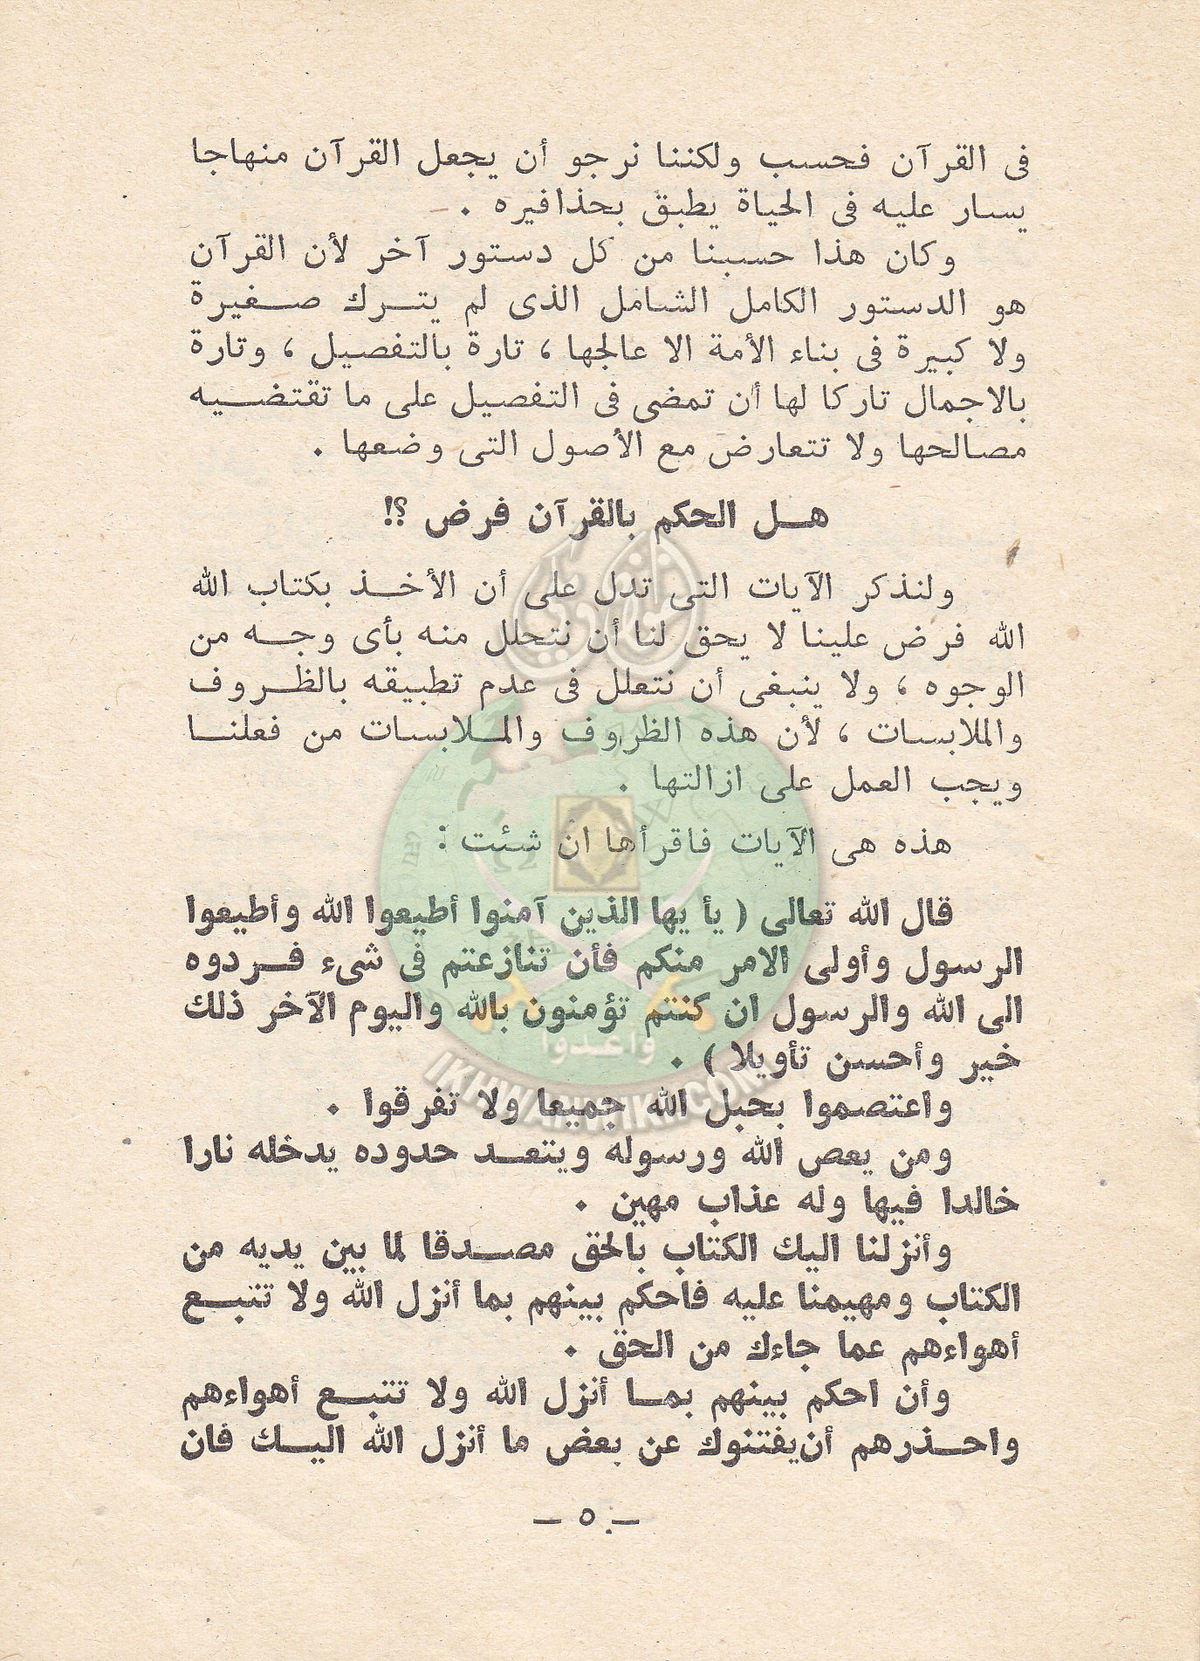 فى القرآن فحسب ولكننا نرجو أن يجعل القرآن منهاجا
يسار عليه فى الحياة يطبق بحذافيره .
وكان هذا حسبنا من كل دستور آخر لأن القرآن
هو الدستور الكامل الشامل الذى لم يترك صغيرة
ولا كبيرة فى بناء الأمة الا عالجها ، تارة بالتفصيل ، وتارة
بالاجمال تاركا لها أن تمضى فى التفصيل على ما تقتضيه
مصالحها ولا تتعارض مع الأصول التى وضعها .
هل الحكم بالقرآن فرض ؟!
ولنذكر الآيات التى تدل على أن الأخذ بكتاب الله
الله فرض علينا لا يحق لنا أن نتحلل منه بأى وجه من
الوجوه ، ولا ينبغى أن نتعلل فى عدم تطبيقه بالظروف
والملابسات ، لأن هذه الظروف والملابسات من فعلنا
ويجب العمل على ازالتها .
هذه هى الآيات فاقرأها ان شئت :
قال الله تعالى ( يأيها الذين آمنوا أطيعوا الله وأطيعوا
الرسول وأولى الامر منكم فأن تنازعتم فى شىء فردوه
الى الله والرسول ان كنتم تؤمنون بالله واليوم الآخر ذلك
خير وأحسن تأويلا ) .
واعتصموا بحبل الله جميعا ولا تفرقوا .
ومن يعص الله ورسوله ويتعد حدوده يدخله نارا
خالدا فيها وله عذاب مهين .
وأنزلنا اليك الكتاب بالحق مصدقا لما بين يديه من
الكتاب ومهيمنا عليه فاحكم بينهم بما أنزل الله ولا تتبع
أهواءهم عما جاءك من الحق .
وأن احكم بينهم بما أنزل الله ولا تتبع أهواءهم
واحذرهم أن يفتنوك عن بعض ما أنزل الله اليك فان
— ٥ —
وأعدوا
IKHWANWIKI.COM